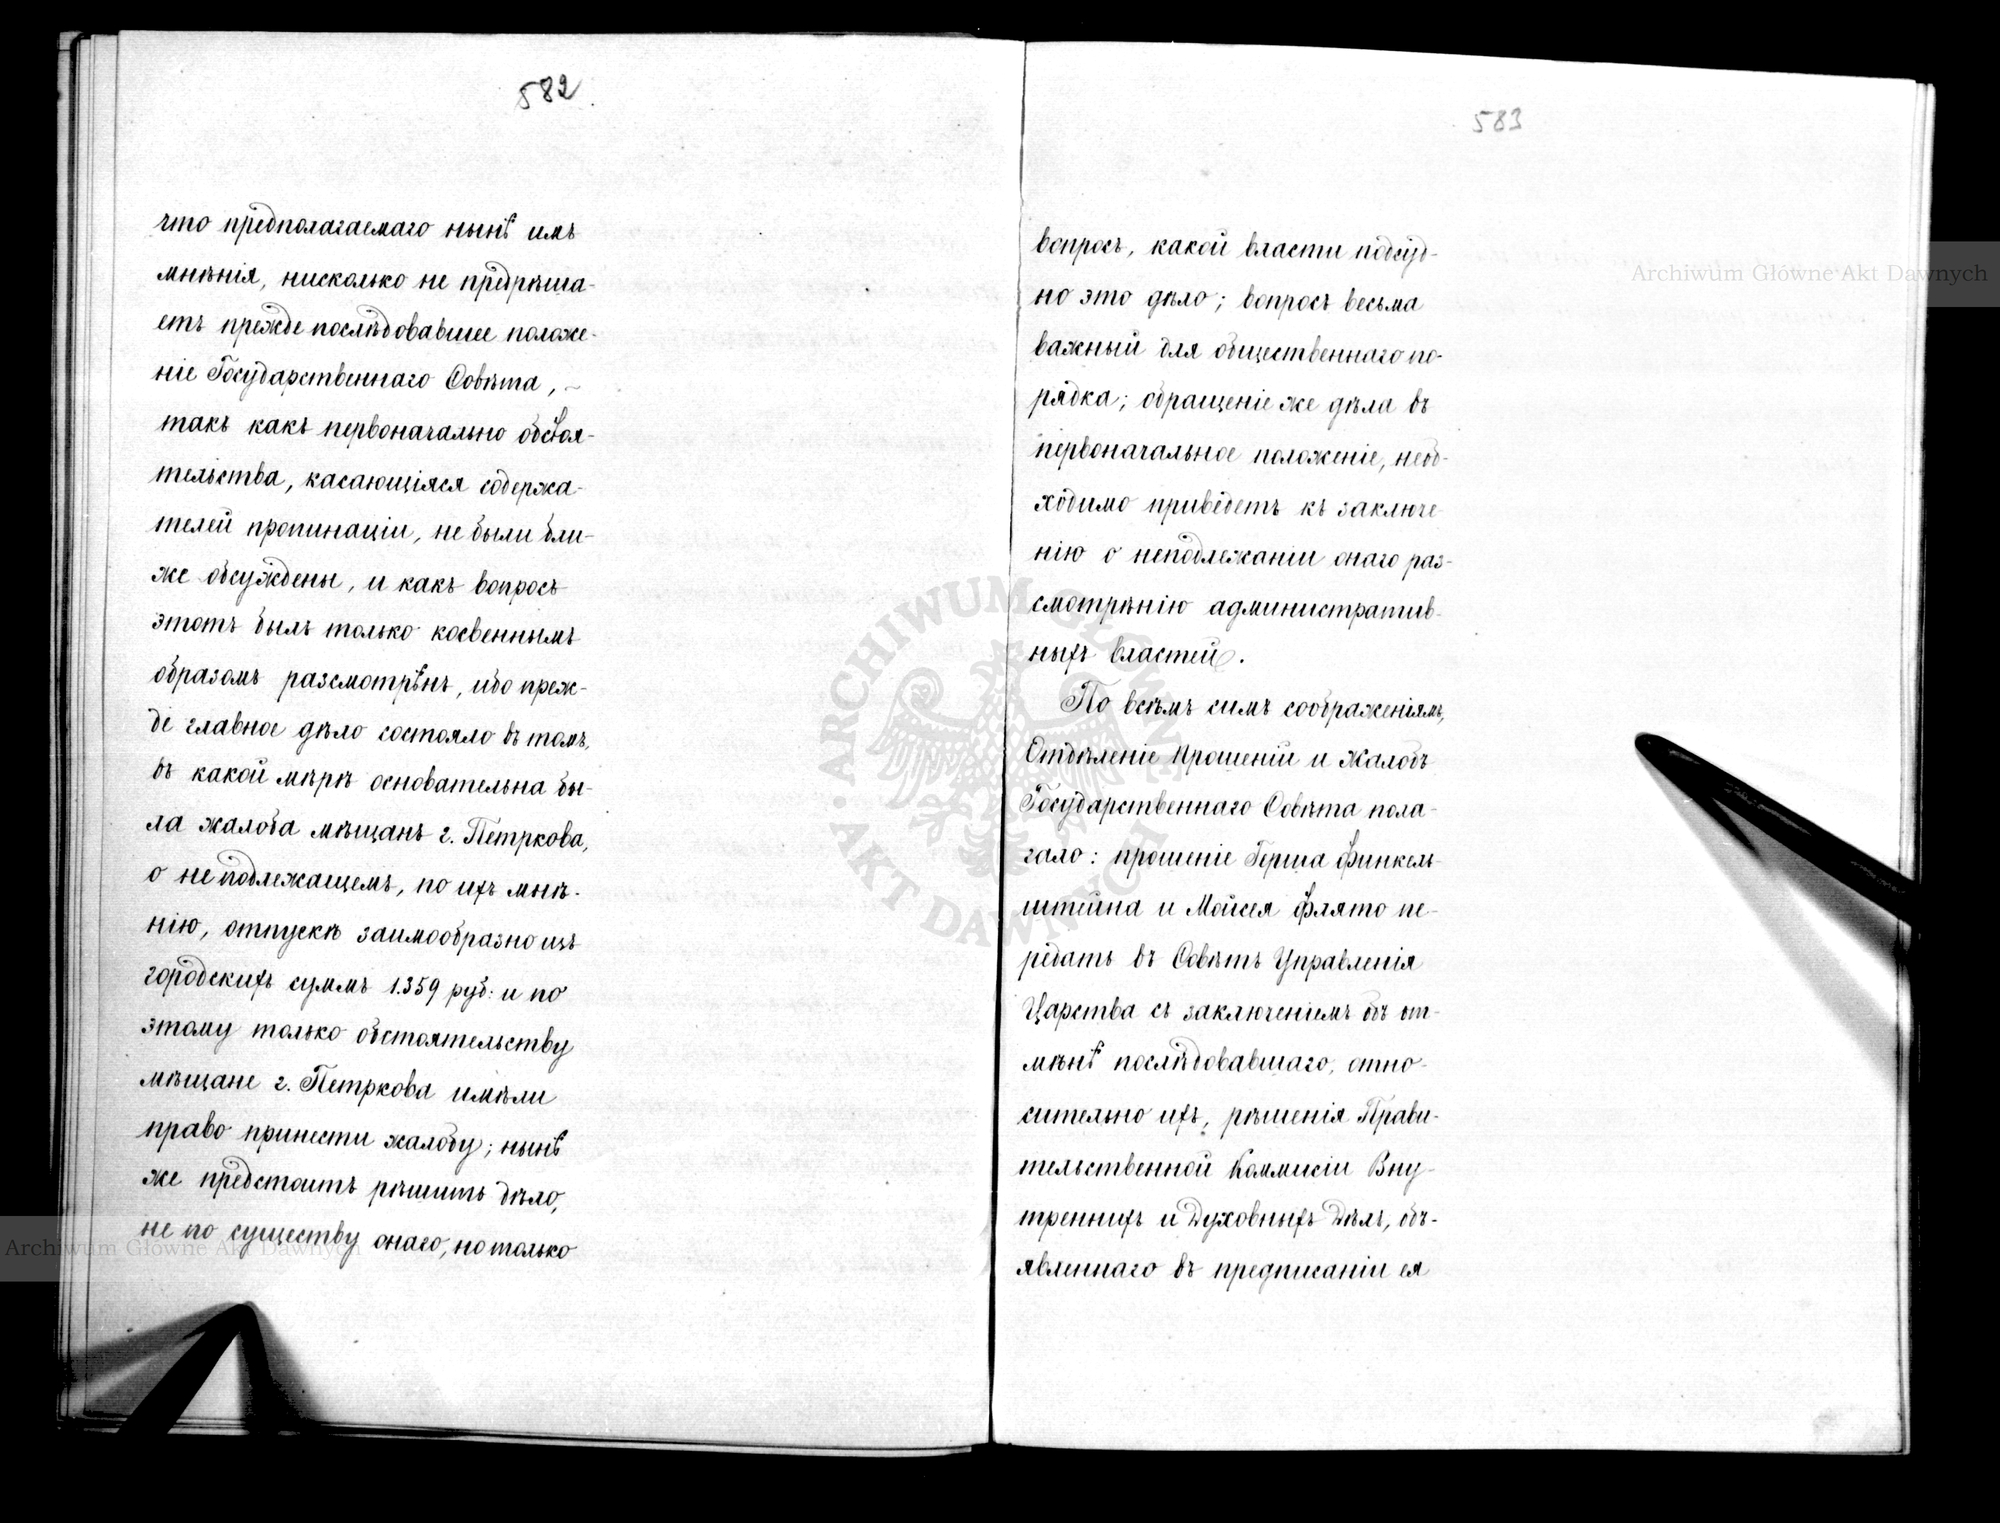 582
что предполагаемаго нынѣ имъ
мнѣнія, нисколько не предрѣша-
етъ прежде послѣдовавшее положе-
ніе Государственнаго Совѣта, -
такъ какъ первоначально обстоя-
тельства, касающіяся содержа-
телей пропинаціи, не были бли-
же обсуждены, и какъ вопросъ
этотъ былъ только косвеннымъ
образомъ разсмотрѣнъ, ибо преж-
де главное дѣло состояло въ томъ,
въ какой мѣрѣ основательна бы-
ла жалоба мѣщанъ г. Петркова,
о неподлежащемъ, по ихъ мнѣ-
нію, отпускѣ заимообразно изъ
городскихъ суммъ 1.359 руб: и по
этому только обстоятельству
мѣщане г. Петркова имѣли
право принести жалобу; нынѣ
же предстоитъ рѣшить дѣло,
не по существу онаго, но только
583
вопросъ, какой власти подсуд-
но это дѣло; вопросъ весьма
важный для общественнаго по-
рядка; обращеніе же дѣла въ
первоначальное положеніе, необ-
ходимо приведетъ къ заключе
нію о неподлежаніи онаго раз-
смотрѣнію административ-
ныхъ властей.
По всѣмъ симъ соображеніямъ,
Отдѣленіе Прошеній и Жалобъ
Государственнаго Совѣта пола-
гало: прошеніе Герша Финкель-
штейна и Мойсея Флято пе-
редать въ Совѣтъ Управленія
Царства съ заключеніемъ объ от-
мѣнѣ послѣдовавшаго, отно-
сительно ихъ, рѣшенія Прави-
тельственной Коммисіи Вну-
треннихъ и Духовныхъ Дѣлъ, объ-
явленнаго въ предписаніи ея
Archiwum Główne Akt Dawnych
Archiwum Główne Akt Dawnych
ARCHIWUM GŁÓWNE AKT DAWNYCH